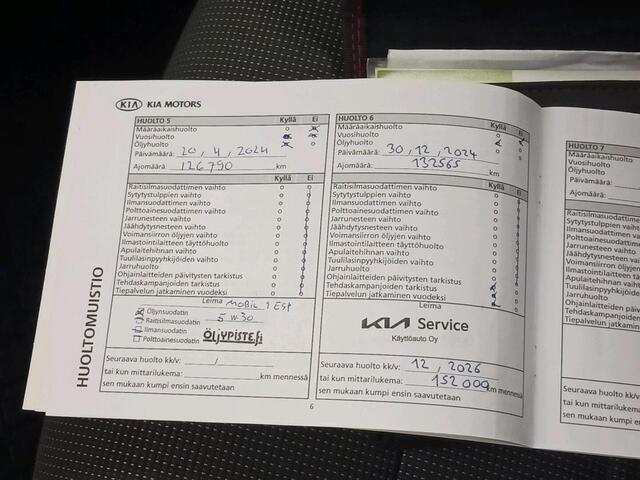 KIA KIA MOTORS
HUOLTO 5 Kyllä Ei
Määräaikaishuolto
Vuosihuolto
Öljyhuolto
Päivämäärä: 20, 4, 2024
Ajomäärä: 126790 km
Raitisilmasuodattimen vaihto
Sytytystulppien vaihto
Ilmansuodattimen vaihto
Polttoainesuodattimen vaihto
Jarrunesteen vaihto
Jäähdytysnesteen vaihto
Voimansiirron öljyjen vaihto
Ilmastointilaitteen täyttöhuolto
Apulaitehihnan vaihto
Tuulilasinpyyhkijöiden vaihto
Jarruhuolto
Ohjainlaitteiden päivitysten tarkistus
Tehdaskampanjoiden tarkistus
Tiepalvelun jatkaminen vuodeksi
Leima Mobil 1 ESP
Öljynsuodatin 5W30
Raitisilmasuodatin
Ilmansuodatin
Polttoainesuodatin ÖLJYPISTE.fi
Seuraava huolto kk/v: /
tai kun mittarilukema: km mennessä
sen mukaan kumpi ensin saavutetaan
HUOLTO 6 Kyllä Ei
Määräaikaishuolto
Vuosihuolto
Öljyhuolto
Päivämäärä: 30, 12, 2024
Ajomäärä: 132565 km
Raitisilmasuodattimen vaihto
Sytytystulppien vaihto
Ilmansuodattimen vaihto
Polttoainesuodattimen vaihto
Jarrunesteen vaihto
Jäähdytysnesteen vaihto
Voimansiirron öljyjen vaihto
Ilmastointilaitteen täyttöhuolto
Apulaitehihnan vaihto
Tuulilasinpyyhkijöiden vaihto
Jarruhuolto
Ohjainlaitteiden päivitysten tarkistus
Tehdaskampanjoiden tarkistus
Tiepalvelun jatkaminen vuodeksi
Leima
KIA Service
Käyttöauto Oy
Seuraava huolto kk/v: 12, 2026
tai kun mittarilukema: 152 000 km mennessä
sen mukaan kumpi ensin saavutetaan
HUOLTO 7
Määräaikaishuolto
Vuosihuolto
Öljyhuolto
Päivämäärä:
Ajomäärä:
Raitisilmasuodattimen
Sytytystulppien vaihto
Ilmansuodattimen vaih
Polttoainesuodattimen
Jarrunesteen vaihto
Jäähdytysnesteen vaih
Voimansiirron öljyjen
Ilmastointilaitteen
Apulaitehihnan vaihto
Tuulilasinpyyhkijöiden
Jarruhuolto
Ohjainlaitteiden
Tehdaskampanjoiden
Tiepalvelun jatkaminen
Seuraava huolto kk/v:
tai kun mittarilukema:
sen mukaan kumpi en
HUOLTOMUISTIO
6